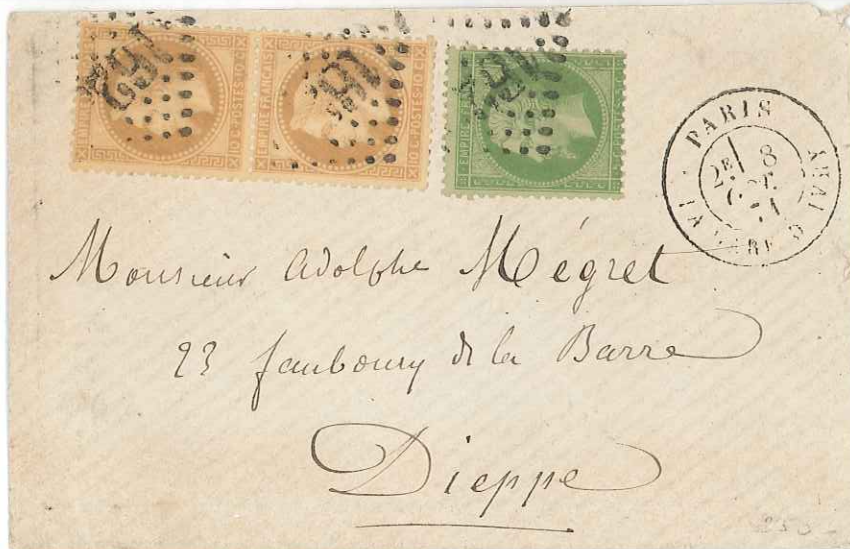 162 162 162
10 C. POSTES 10 C.
EMPIRE FRANÇAIS
10 C. POSTES 10 C.
EMPIRE
PARIS
2E
8
OCT.
71
Monsieur Adolphe Mégret
23 faubourg de la Barre
Dieppe